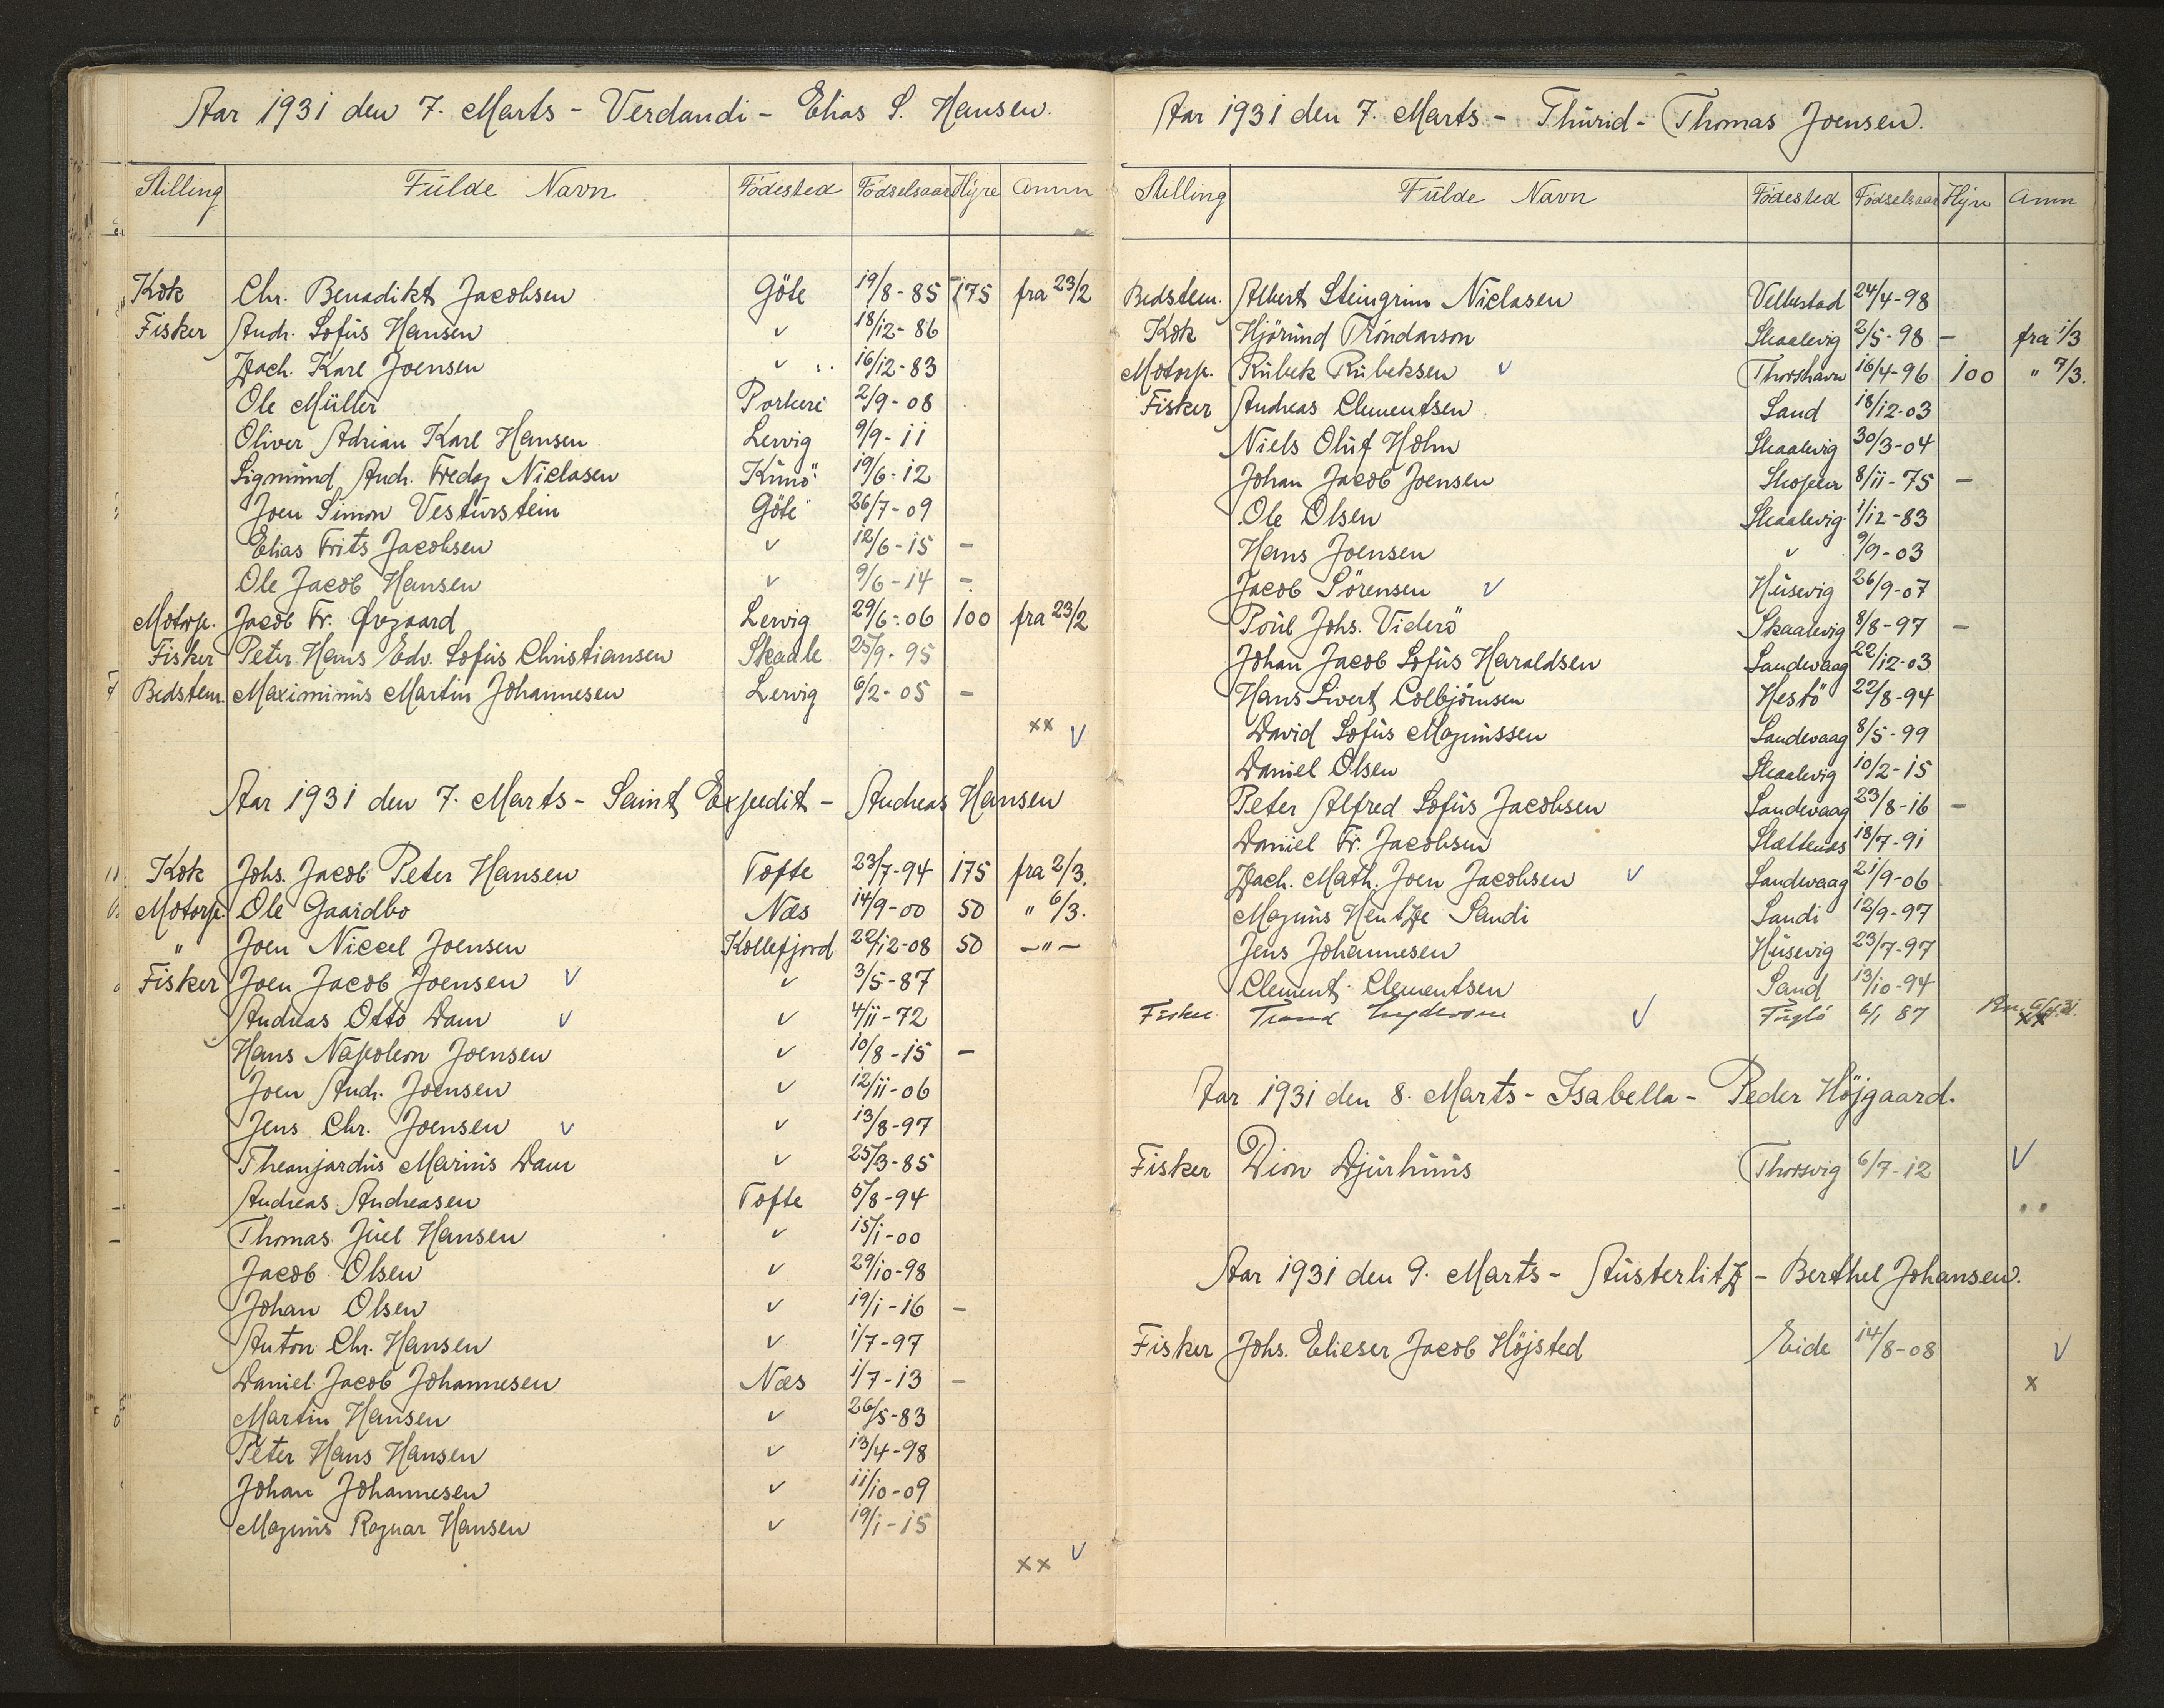 Aar 1931 den 7. Marts - Verdandi - Elias S. Hansen.
Stilling Fulde Navn Födested Födselsaar Hyre Anm
Kok Chr. Benadikt Jacobsen Göte 19/8-85 175 fra 23/2
Fisker Andr. Sofus Hansen v 18/12-86
Zach. Karl Joensen v 16/12-83
Ole Müller Porkeri 2/9-08
Oliver Adrian Karl Hansen Lervig 9/9-11
Sigmund Andr. Fredaz Niclasen Kunö 19/6-12
Joen Simon Vesturstein Göte 26/7-09
Elias Frits Jacobsen v 12/6-15 -
Ole Jacob Hansen v 9/6-14 -
Motorp. Jacob Fr. Øregaard Lervig 29/6-06 100 fra 23/2
Fisker Peter Hans Edv. Sofus Christiansen Skaale 25/9-95
Bedstem. Maximinus Martin Johannesen Lervig 6/2-05 -
xx v
Aar 1931 den 7. Marts - Saint Expedit - Andreas Hansen
Kok Johs. Jacob Peter Hansen Tofte 23/7-94 175 fra 2/3.
Motorp. Ole Gaardbo Næs 14/9-00 50 " 6/3.
" Joen Niccel Joensen Kollefjord 22/12-08 50 -"-
Fisker Joen Jacob Joensen v v 3/5-87
Andreas Otto Dam v v 4/11-72
Hans Napoleon Joensen v 10/8-15 -
Joen Andr. Joensen v 12/11-06
Jens Chr. Joensen v v 13/8-97
Theanjardus Marius Dam v 25/3-85
Andreas Andreasen Tofte 5/8-94
Thomas Juel Hansen v 15/1-00
Jacob Olsen v 29/10-98
Johan Olsen v 19/1-16 -
Anton Chr. Hansen v 1/7-97
Daniel Jacob Johannesen Næs 1/7-13 -
Martin Hansen v 26/5-83
Peter Hans Hansen v 13/4-98
Johan Johannesen v 11/10-09
Magnus Ragnar Hansen v 19/1-15
xx v
Aar 1931 den 7. Marts - Thurid - Thomas Joensen.
Stilling Fulde Navn Födested Födselsaar Hyre Anm
Bedstem. Albert Steingrim Niclasen Velbestad 24/4-98
Kok Hjörund Tróndarson Skaalevig 2/5-98 - fra 1/3
Motorp. Rubek Rubeksen v Thorshavn 16/4-96 100 " 7/3.
Fisker Andreas Clementsen Sand 18/12-03
Niels Oluf Holm Skaalevig 30/3-04
Johan Jacob Joensen Skopen 8/11-75 -
Ole Olsen Skaalevig 1/12-83
Hans Joensen v 9/9-03
Jacob Sörensen v Husevig 26/9-07
Poul Johs. Viderö Skaalevig 8/8-97 -
Johan Jacob Sofus Haraldsen Sandevaag 22/12-03
Hans Sivert Colbjörnsen Hestö 22/8-94
David Sofus Magnussen Sandevaag 8/5-99
Daniel Olsen Skaalevig 10/2-15
Peter Alfred Sofus Jacobsen Sandevaag 23/8-16 -
Daniel Fr. Jacobsen Slættenæs 18/7-91
Zach. Math. Joen Jacobsen v Sandevaag 21/9-06
Magnus Hentze Sandi Sandi 12/9-97
Jens Johannesen Husevig 23/7-97
Clement Clementsen Sand 13/10-94
Fisker v Fuglö 6/1 87 xx
Aar 1931 den 8. Marts - Isabella - Peder Höjgaard.
Fisker Dion Djurhuus Thorsvig 6/7-12 v
Aar 1931 den 9. Marts - Austerlitz - Berthel Johansen.
Fisker Johs. Elieser Jacob Höjsted Eide 14/8-08 v
x